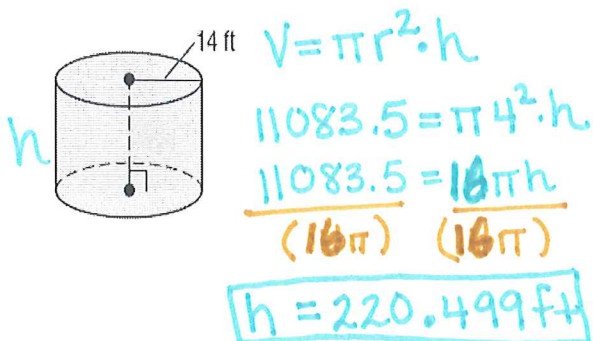 14 ft
h
V = πr²·h
11083.5 = π4²·h
11083.5 = 16πh
(16π) (16π)
h = 220.499ft